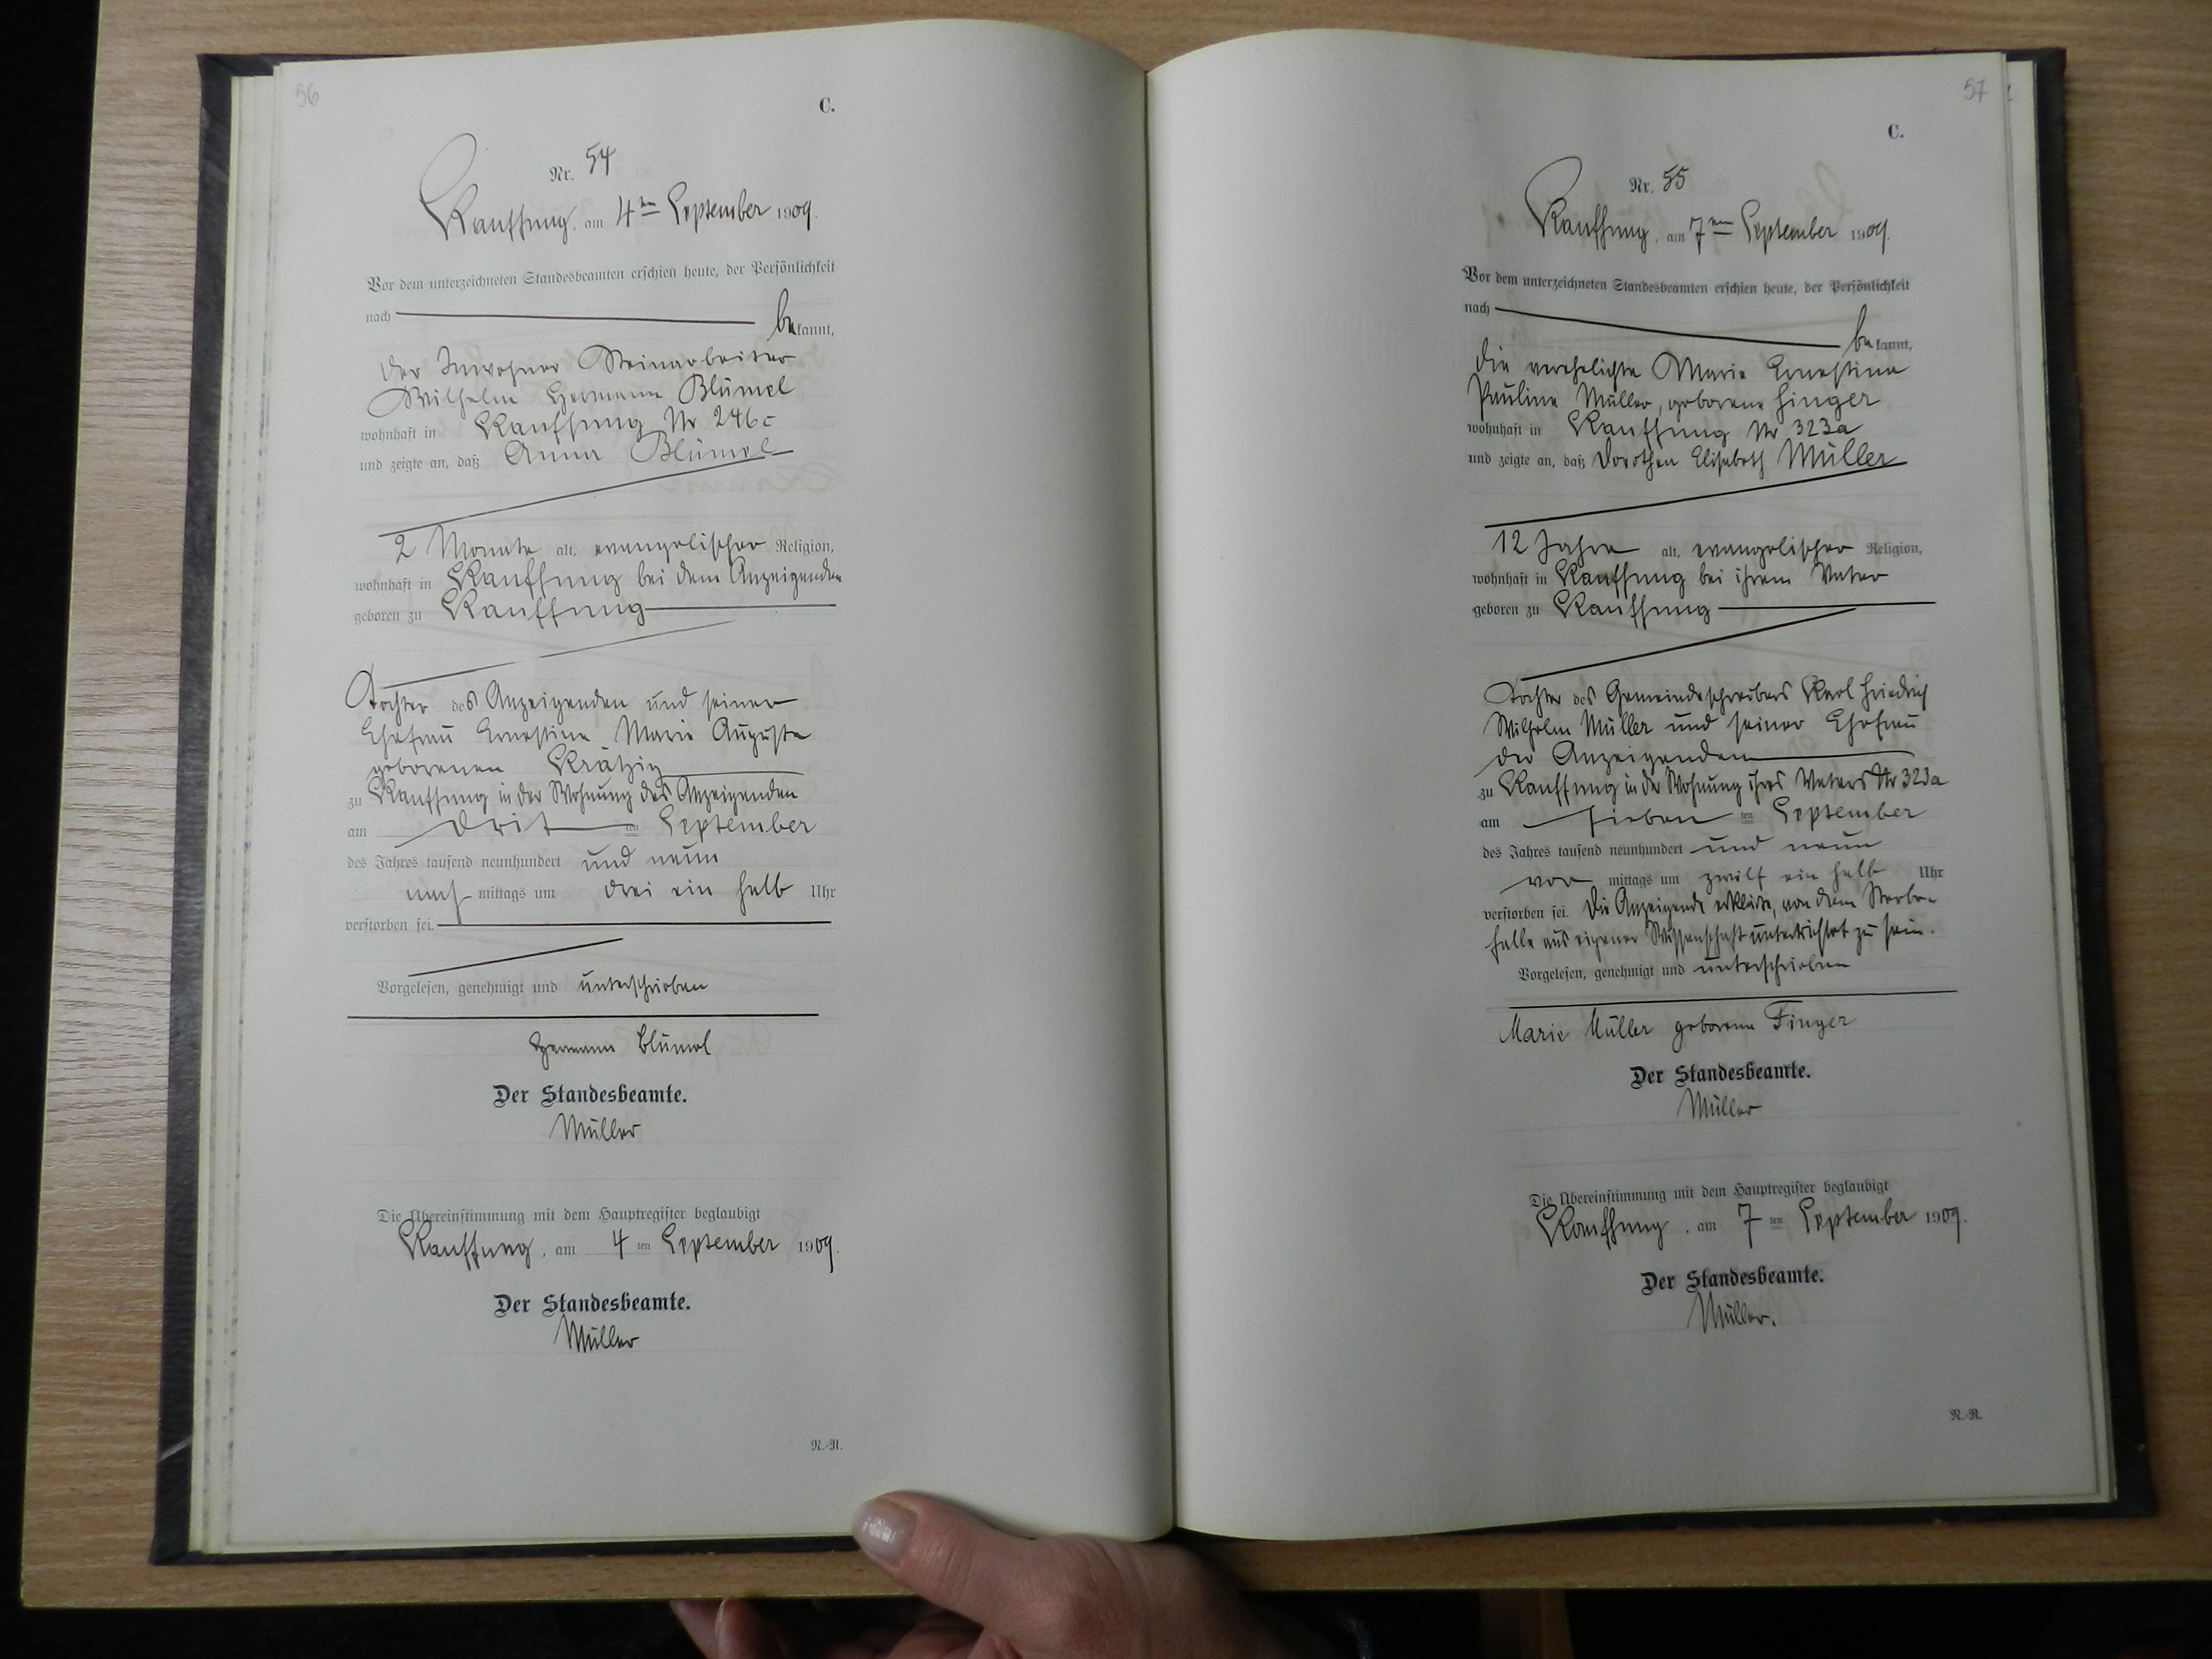 56
C.
Nr. 54
Kauffung, am 4ten September 1909.
Vor dem unterzeichneten Standesbeamten erschien heute, der Persönlichkeit
nach
bekannt,
der Inwohner Steinarbeiter
Wilhelm Hermann Blümel
wohnhaft in Kauffung Nr 246c
und zeigte an, daß Anna Blümel
2 Monate alt, evangelischer Religion,
wohnhaft in Kauffung bei dem Anzeigenden
geboren zu Kauffung
Tochter des Anzeigenden und seiner
Ehefrau Ernestine Marie Auguste
geborenen Krätzig
zu Kauffung in der Wohnung des Anzeigenden
am drit ten September
des Jahres tausend neunhundert und neun
nach mittags um drei ein halb Uhr
verstorben sei.
Vorgelesen, genehmigt und unterschrieben
Hermann Blümel
Der Standesbeamte.
Müller
Die Übereinstimmung mit dem Hauptregister beglaubigt
Kauffung, am 4 ten September 1909.
Der Standesbeamte.
Müller
N.-N.
57
C.
Nr. 55
Kauffung, am 7ten September 1909.
Vor dem unterzeichneten Standesbeamten erschien heute, der Persönlichkeit
nach
bekannt,
die verehelichte Marie Ernestine
Pauline Müller, geborene Finger
wohnhaft in Kauffung Nr 323a
und zeigte an, daß Dorothea Elisabeth Müller
12 Jahre alt, evangelischer Religion,
wohnhaft in Kauffung bei ihrem Vater
geboren zu Kauffung
Tochter des Gemeindeschreibers Karl Friedrich
Wilhelm Müller und seiner Ehefrau
der Anzeigenden
zu Kauffung in der Wohnung ihres Vaters Nr 323a
am sieben ten September
des Jahres tausend neunhundert und neun
vor mittags um zwölf ein halb Uhr
verstorben sei. Die Anzeigende erklärte, von dem Sterbe-
falle aus eigener Wissenschaft unterrichtet zu sein.
Vorgelesen, genehmigt und unterschrieben
Marie Müller geborene Finger
Der Standesbeamte.
Müller
Die Übereinstimmung mit dem Hauptregister beglaubigt
Kauffung, am 7 ten September 1909.
Der Standesbeamte.
Müller.
N.-N.